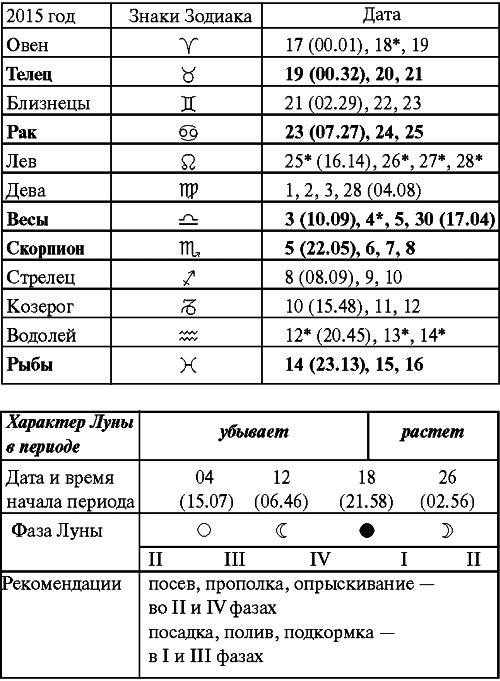 2015 год Знаки Зодиака Дата
Овен ♈ 17 (00.01), 18*, 19
Телец ♉ 19 (00.32), 20, 21
Близнецы ♊ 21 (02.29), 22, 23
Рак ♋ 23 (07.27), 24, 25
Лев ♌ 25* (16.14), 26*, 27*, 28*
Дева ♍ 1, 2, 3, 28 (04.08)
Весы ♎ 3 (10.09), 4*, 5, 30 (17.04)
Скорпион ♏ 5 (22.05), 6, 7, 8
Стрелец ♐ 8 (08.09), 9, 10
Козерог ♑ 10 (15.48), 11, 12
Водолей ♒ 12* (20.45), 13*, 14*
Рыбы ♓ 14 (23.13), 15, 16
Характер Луны
в периоде убывает растет
Дата и время 04 12 18 26
начала периода (15.07) (06.46) (21.58) (02.56)
Фаза Луны ○ ☾ ● ☽
II III IV I II
Рекомендации посев, прополка, опрыскивание —
во II и IV фазах
посадка, полив, подкормка —
в I и III фазах